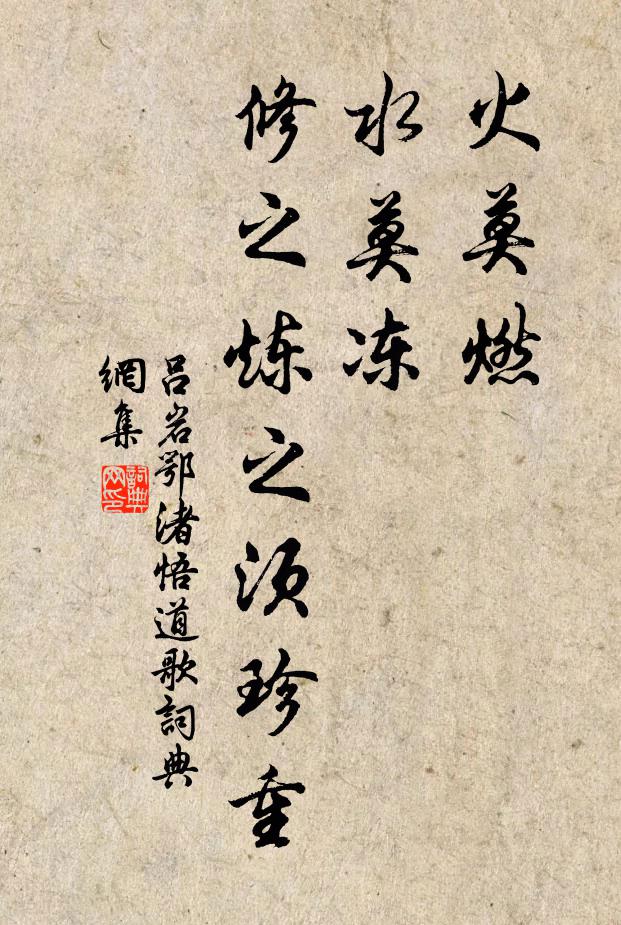 火莫燃
水莫冻
修之炼之须珍重
吕岩鄂渚悟道歌詞典
網集
詞典
网印